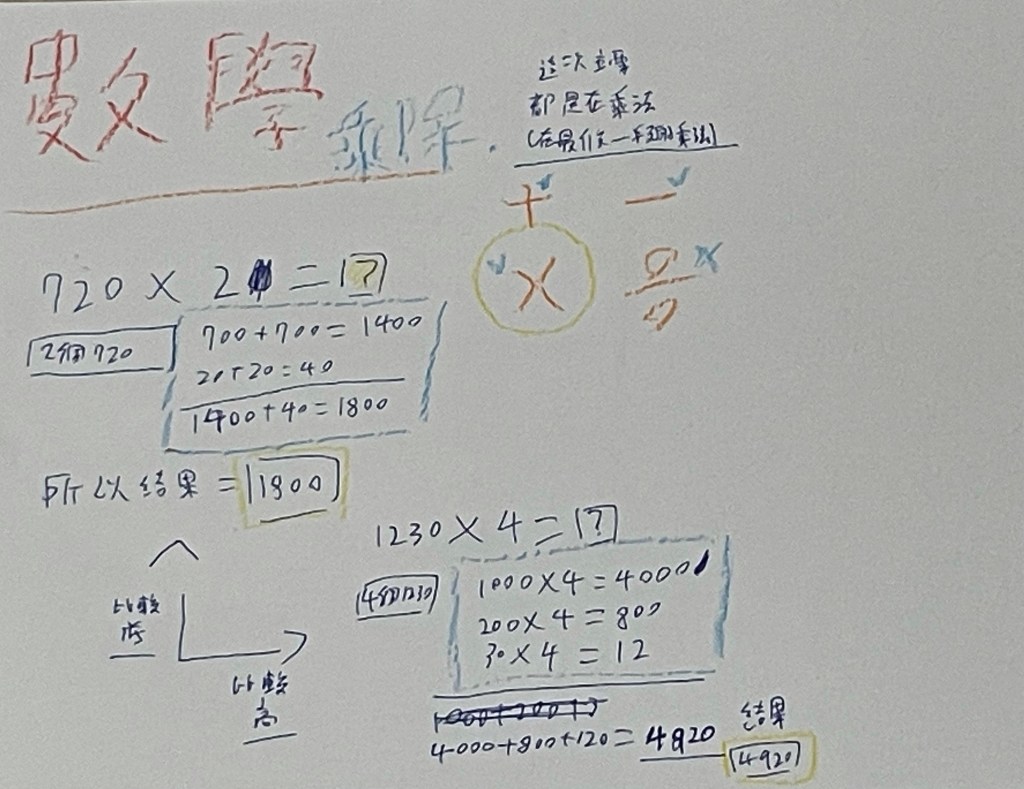 數學
乘除.
這次主要
都是在乘法
+
-
×
720 × 2 = ?
2個720
700+700=1400
20+20=40
1400+40=1800
所以結果 = 1800
1230 × 4 = ?
4個1230
1000×4=4000
200×4=800
30×4=12
4000+800+120=4920
結果
4920
比較
比較
高